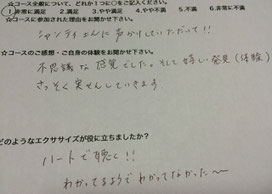 ☆コース全般について、どれか1つに○をご記入ください。
1.非常に満足 2.満足 3.やや満足 4.やや不満 5.不満 6.非常に不満
☆コースに参加された理由をお聞かせ下さい。
シャンティさんに声かけしていただいて!!
☆コースのご感想・ご自身の体験をお聞かせ下さい。
不思議な感覚でした。そして嬉しい発見(体験)
さっそく実せんしていきます
どのようなエクササイズが役に立ちましたか?
ハートで聴く!!
わかってるようでわかってなかった〜